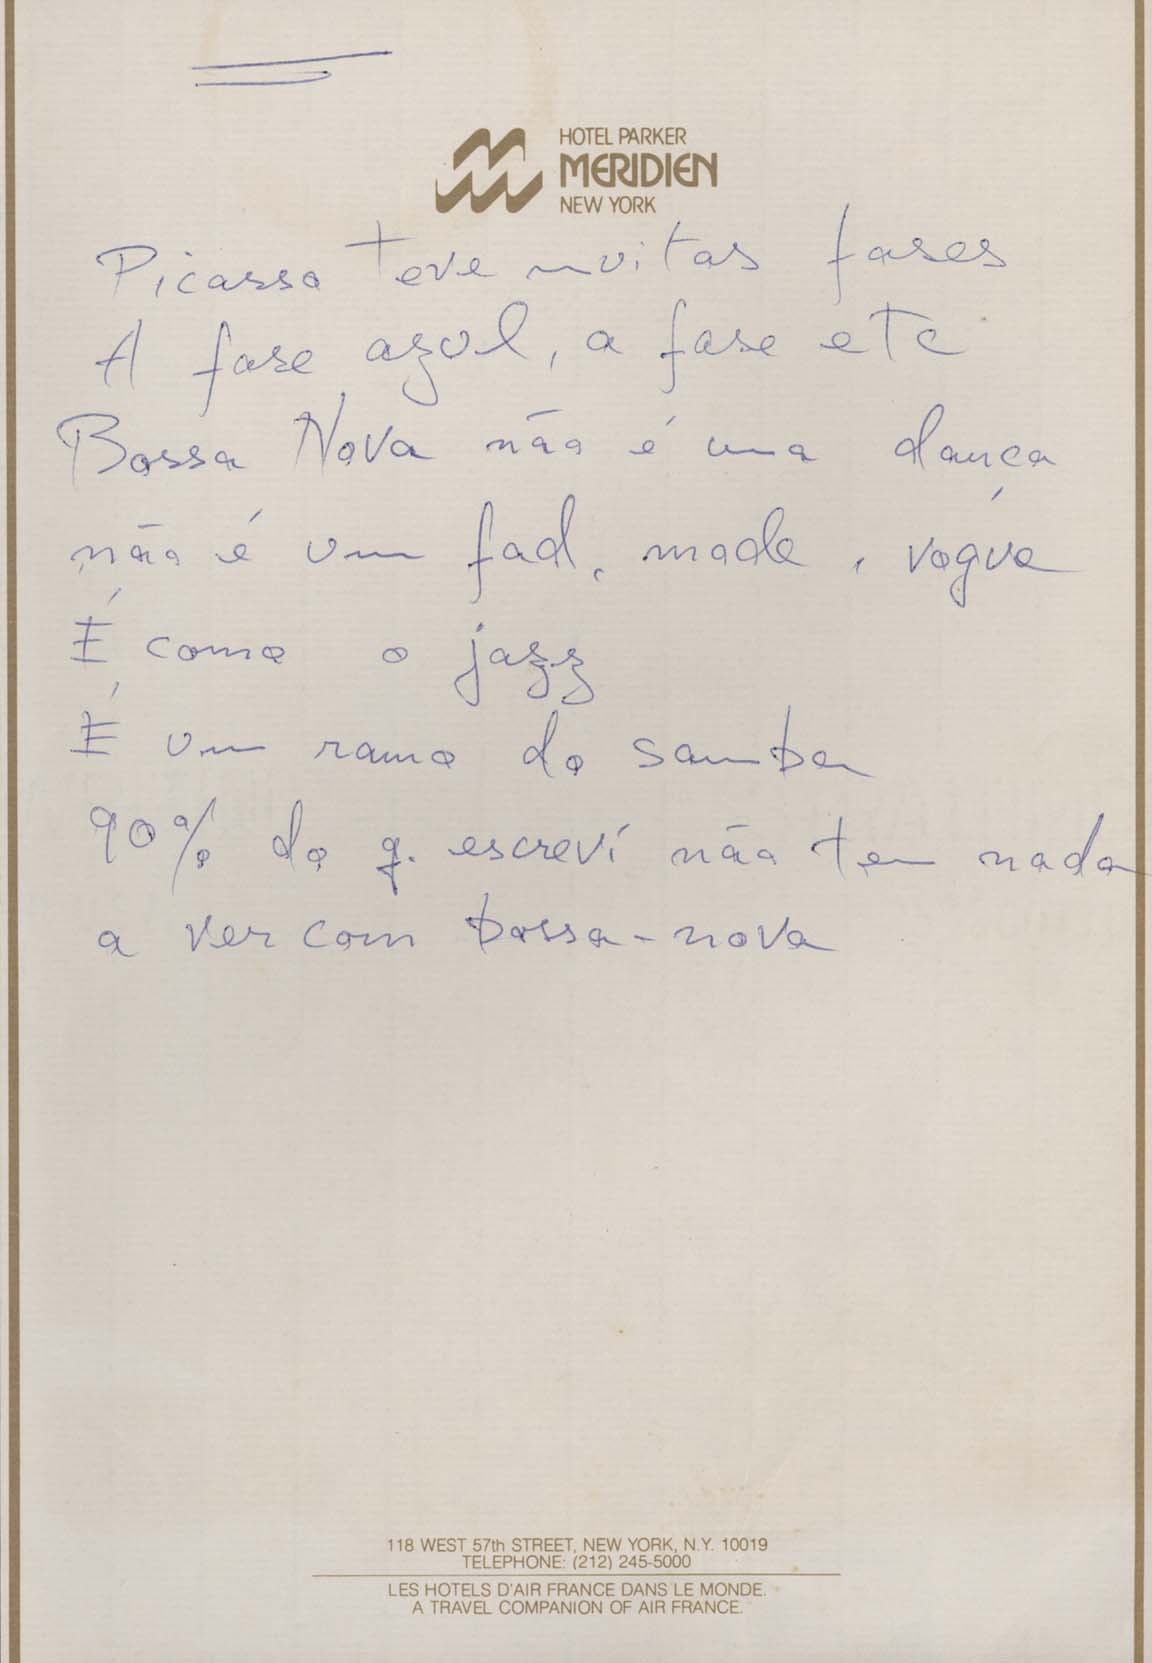 HOTEL PARKER
MERIDIEN
NEW YORK
Picasso teve muitas fases
A fase azul, a fase etc
Bossa Nova não é uma dança
não é um fad, moda, vogue
É como o jazz
É um ramo do samba
90% do q. escreví não tem nada
a ver com bossa-nova
118 WEST 57th STREET, NEW YORK, N.Y. 10019
TELEPHONE: (212) 245-5000
LES HOTELS D'AIR FRANCE DANS LE MONDE.
A TRAVEL COMPANION OF AIR FRANCE.